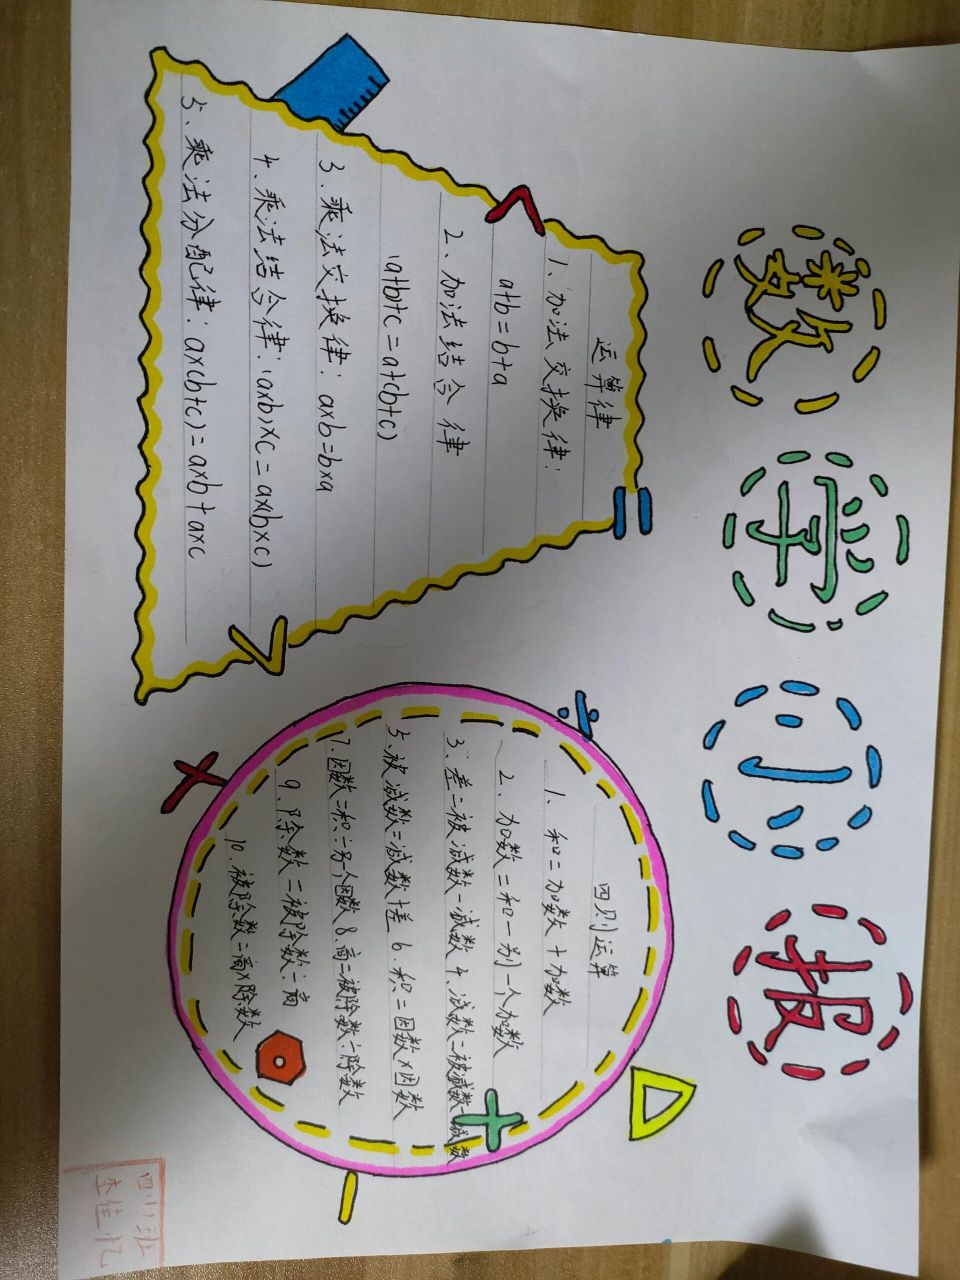 数学小报
运算律
1、加法交换律：
a+b=b+a
2、加法结合律
(a+b)+c=a+(b+c)
3、乘法交换律：a×b=b×a
4、乘法结合律：(a×b)×c=a×(b×c)
5、乘法分配律：a×(b+c)=a×b+a×c
四则运算
1、和=加数+加数
2、加数=和-另一个加数
3、差=被减数-减数 4、减数=被减数-减数
5、被减数=减数+差 6、积=因数×因数
7、因数=积÷另一个因数 8、商=被除数÷除数
9、除数=被除数÷商
10、被除数=商×除数
四11班
李佳忆